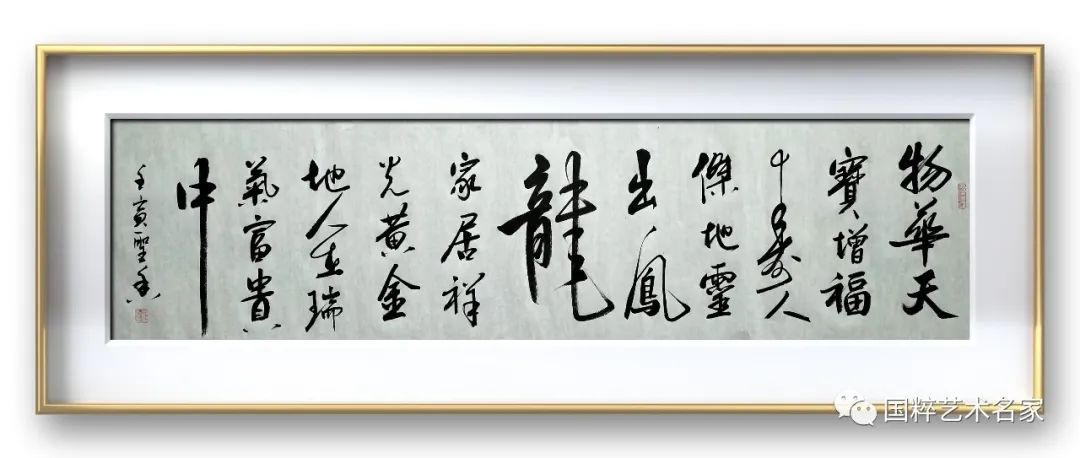 物華天
寶增福
壽人
傑地靈
出鳳
龍
家居祥
光黄金
地人在瑞
氣富貴
中
壬寅聖
国粹艺术名家